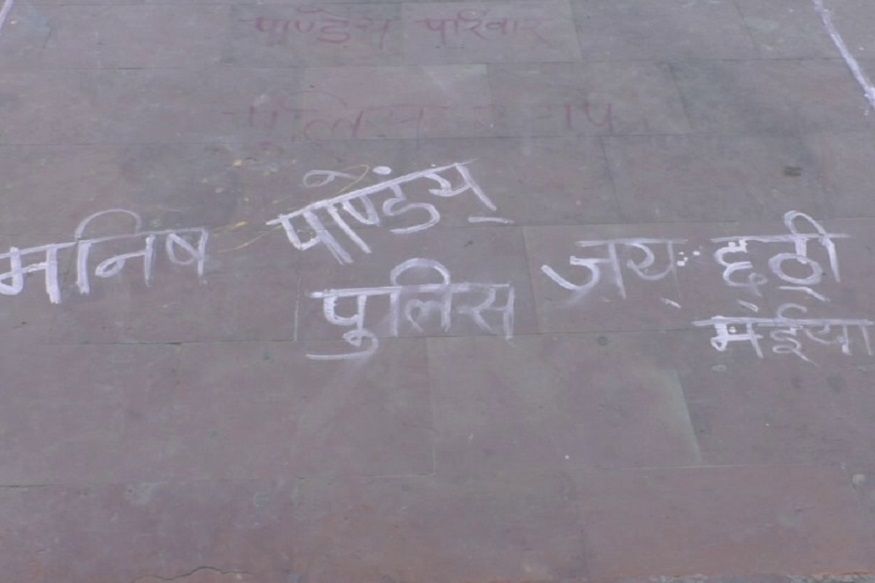 पाण्डेय परिवार
मनिष पाण्डेय
पुलिस
जय छठी
मईया